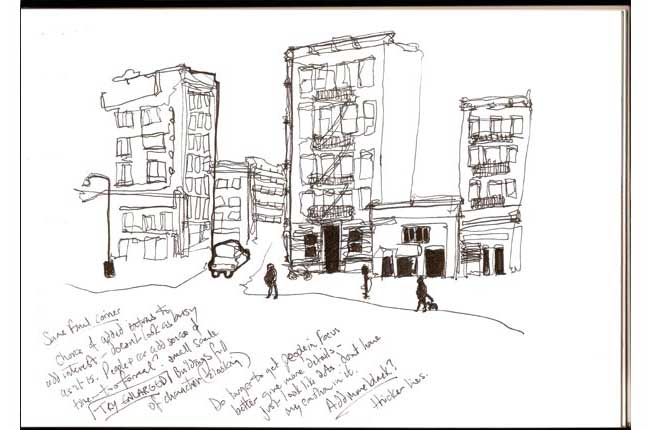 Same final corner
Choice of added to
add interest - doesn't look as busy
as it is. People add sense of
too formal? small scale
TRY ENLARGED Buildings full
of character
Do larger to get people in focus
better give more details -
just look like I don't have
my in it.
Add more black?
thicker lines.